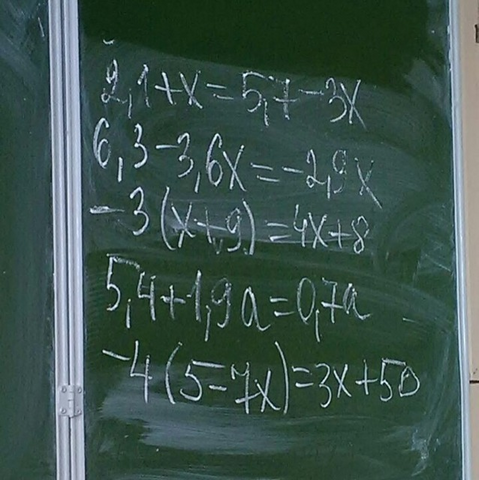 2,1+x=5,7-3x
6,3-3,6x=-2,9x
-3(x+9)=4x+8
5,4+1,9a=0,7a
-4(5-7x)=3x+50